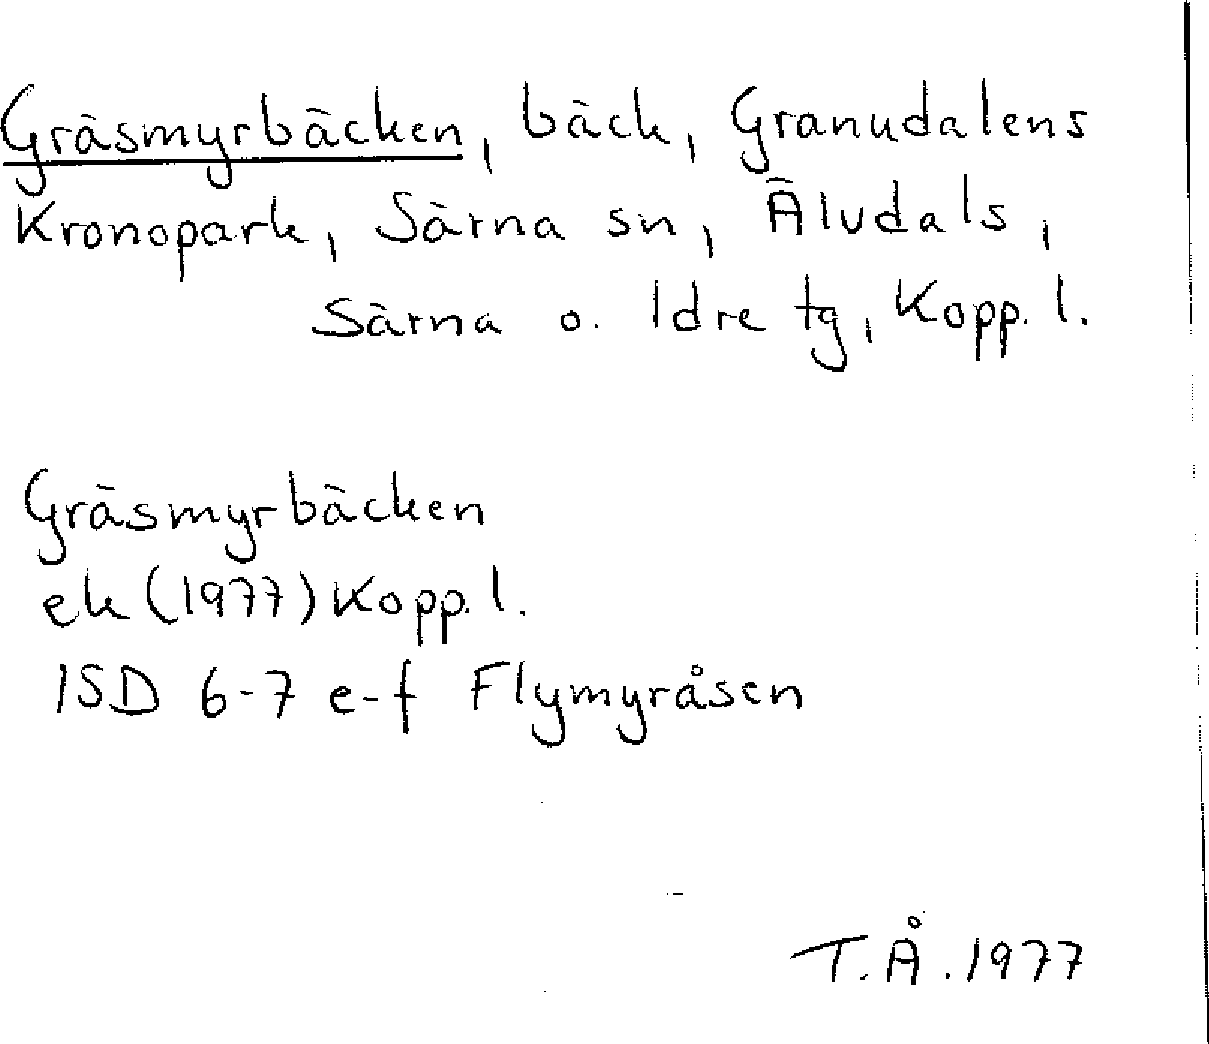 Gräsmyrbäcken, bäck, Granudalens
Kronopark, Särna sn, Älvdals,
Särna o. Idre tg, Kopp. l.
Gräsmyrbäcken
ek (1977) Kopp. l.
15D 6-7 e-f Flymyråsen
T.Å. 1977